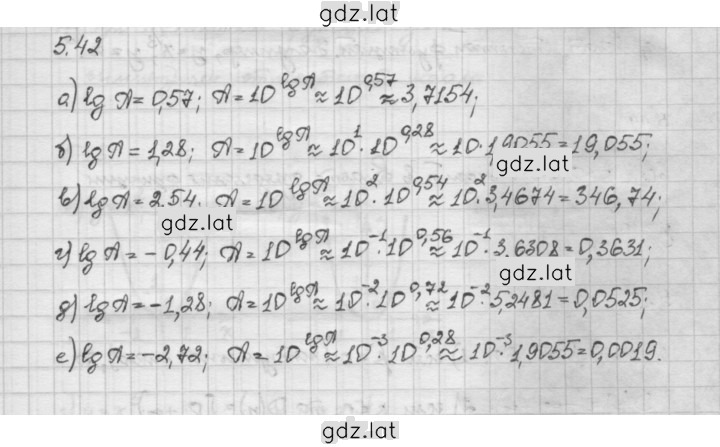 gdz.lat
5.42
а) lg A = 0,57; A = 10^{lg A} ≈ 10^{0,57} ≈ 3,7154;
б) lg A = 1,28; A = 10^{lg A} ≈ 10^{1} · 10^{0,28} ≈ 10 · 1,9055 = 19,055;
gdz.lat
в) lg A = 2.54. A = 10^{lg A} ≈ 10^{2} · 10^{0,54} ≈ 10^{2} · 3,4674 = 346,74;
gdz.lat
г) lg A = - 0,44; A = 10^{lg A} ≈ 10^{-1} · 10^{0,56} ≈ 10^{-1} · 3.6308 = 0,3631;
gdz.lat
д) lg A = -1,28; A = 10^{lg A} ≈ 10^{-2} · 10^{0,72} ≈ 10^{-2} · 5,2481 = 0,0525;
е) lg A = -2,72; A = 10^{lg A} ≈ 10^{-3} · 10^{0,28} ≈ 10^{-3} · 1,9055 = 0,0019.
gdz.lat